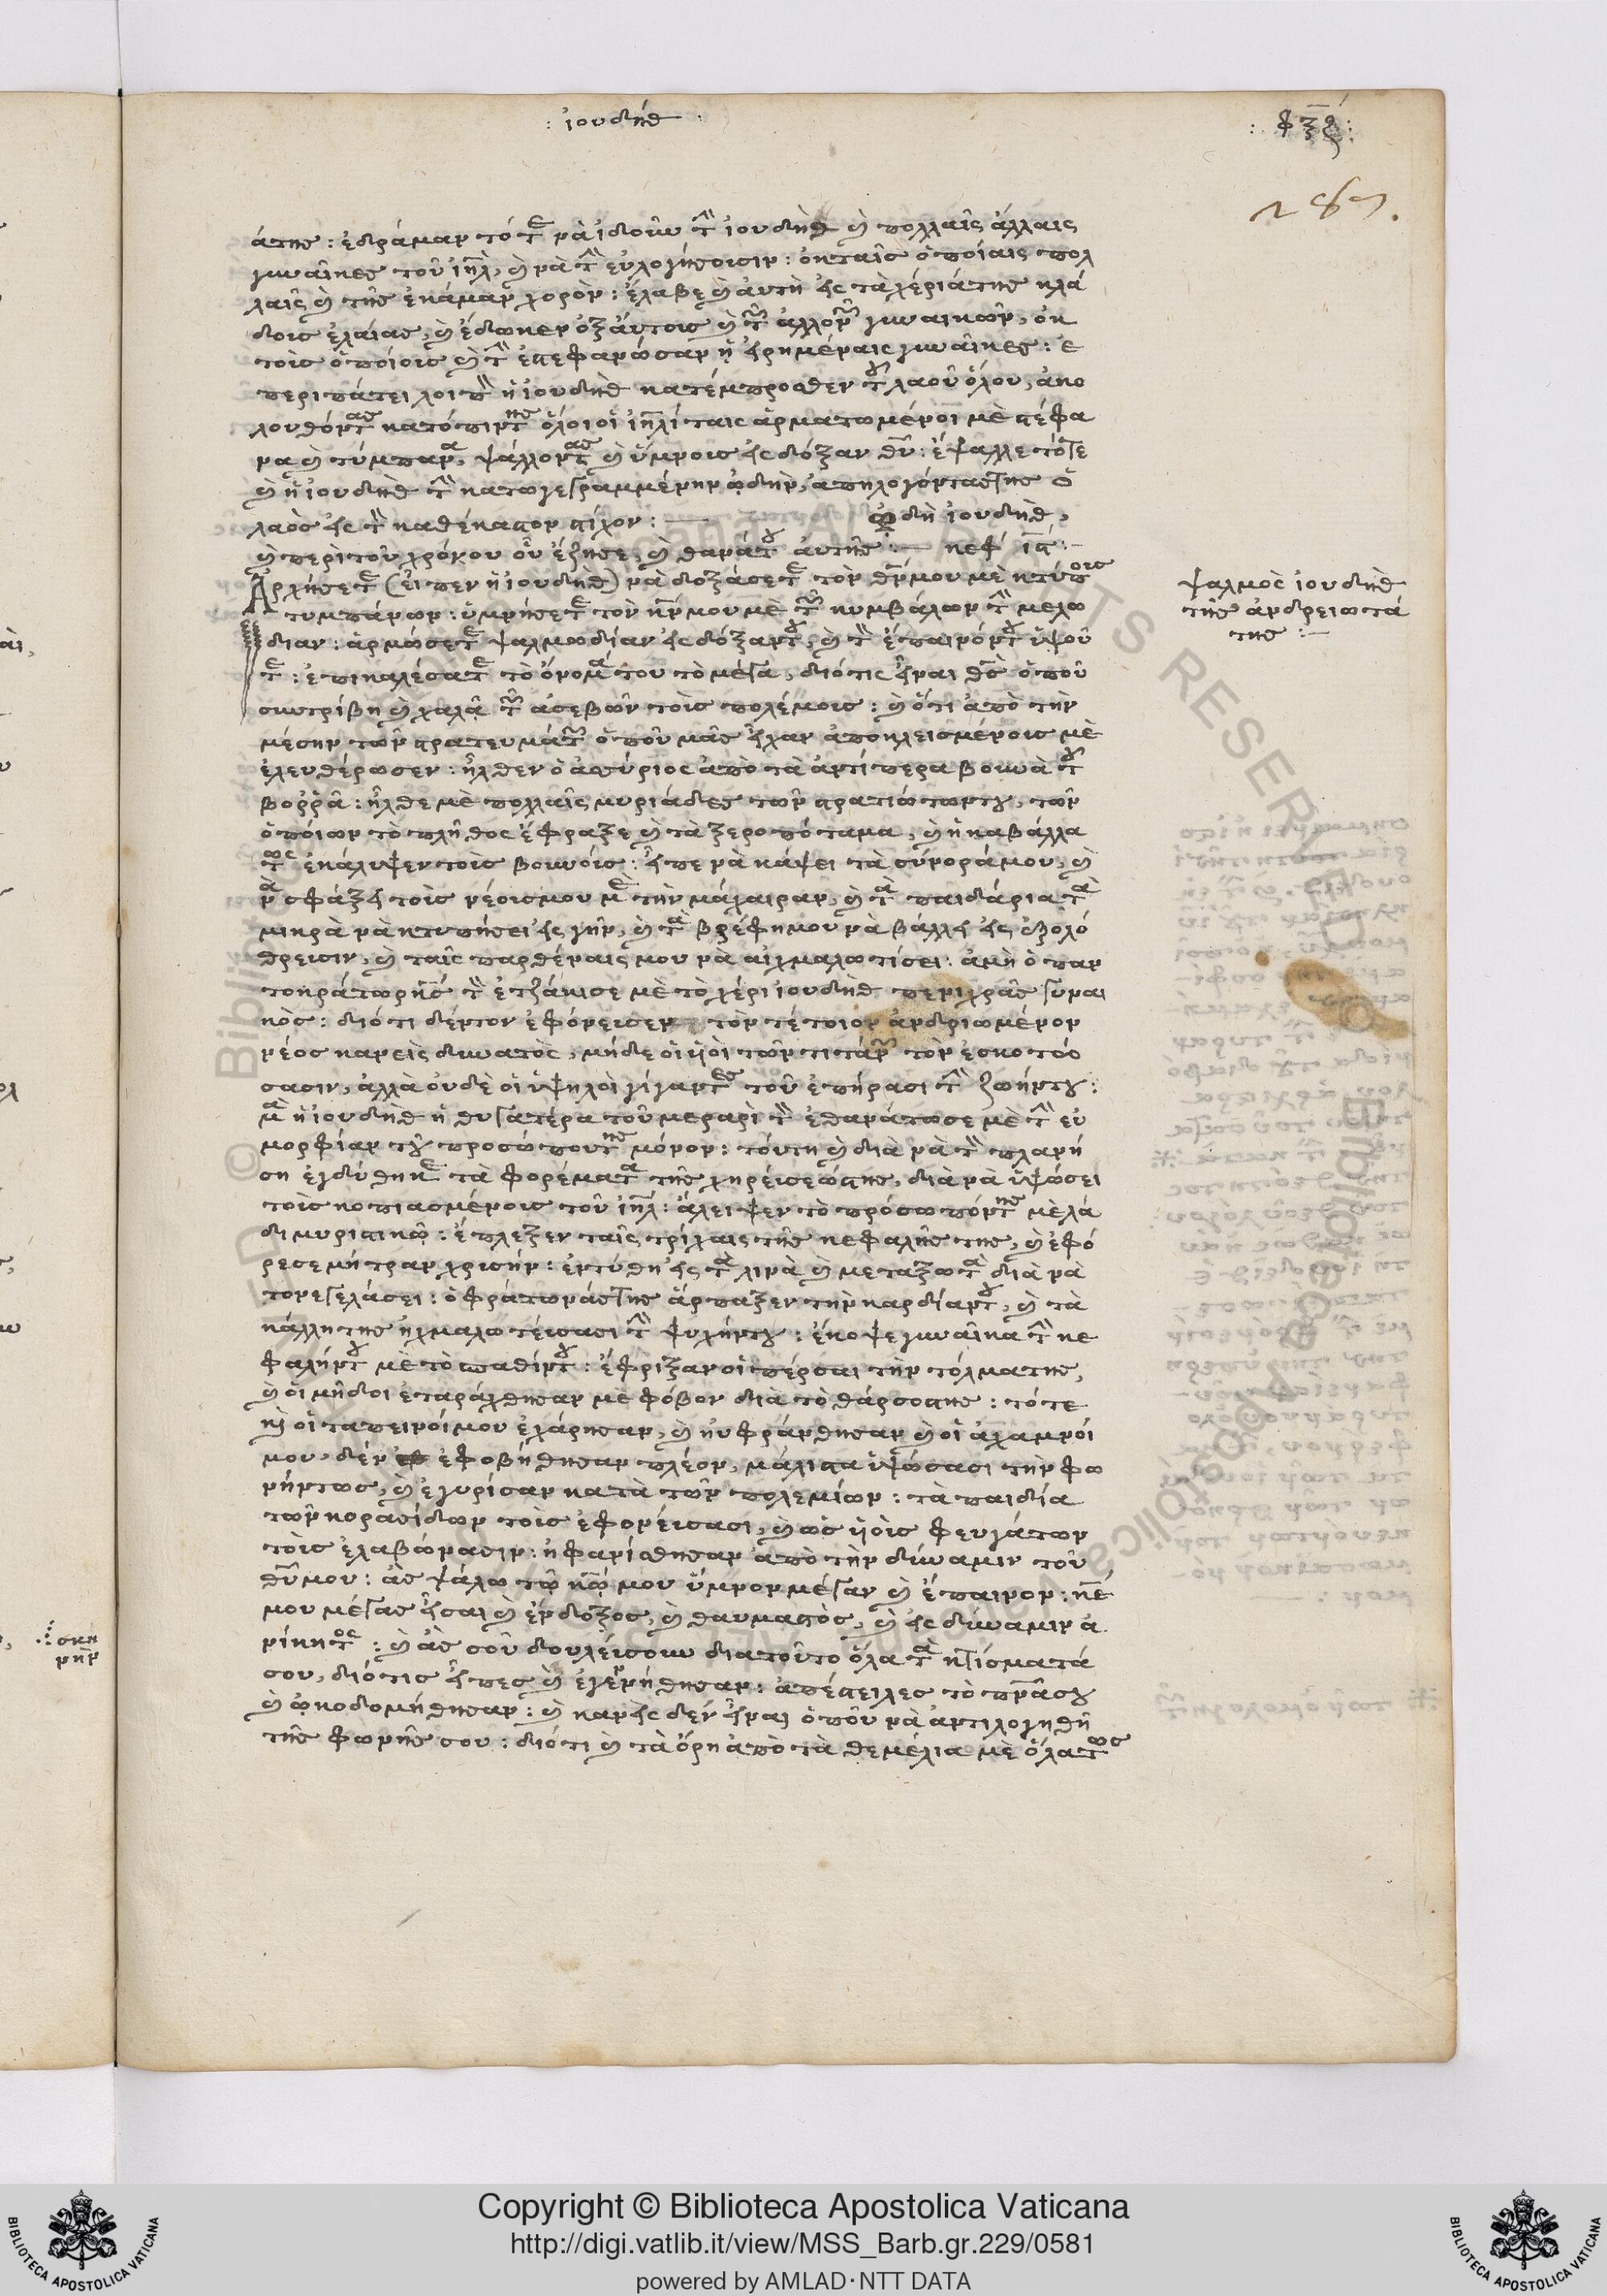 : ἰουδήθ :
: φξζ :
287.
άτης : ἐδράμαν τότε νὰ ἰδοῦν τὴν ἰουδὴθ καὶ πολλαῖς ἄλλαις
γυναῖκες τοῦ ἰηλ, καὶ νὰ τὴν εὐλογήσουσιν : ἐκ ταῖς ὁποίαις πολ
λαῖς καὶ τῆς ἐκάμαν χορὸν : ἔλαβε καὶ ἀυτὴ εἰς τὰ χέριάτης κλά
δοις ἐλαίας, καὶ ἔδωκεν ἐξ ἀύτοις καὶ τῶν ἀλλονῶν γυναικῶν, ἐκ
τοῖς ὁποίοις καὶ τὴν ἐστεφανώσαν ἡ εἰρημέναις γυναῖκες : ἐ
περιπάτει λοιπὸν ἡ ἰουδὴθ κατέμπροσθεν τοῦ λαοῦ ὅλου, ἀκο
λουθόντας κατόπιντης ὅλοι οἱ ἰηλίταις ἀρματωμένοι μὲ στέφα
να καὶ τύμπανα, ψάλλοντας καὶ ὕμνοις εἰς δόξαν θυ : ἔψαλλε τότε
καὶ ἡ ἰουδὴθ τὴν κατωγεγραμμένην ᾠδὴν, ἀπηλογόντας της ὁ
λαὸς εἰς τὸν καθέκαστον στίχον : —
ᾠδὴ ἰουδὴθ,
καὶ περὶ τοῦ χρόνου οὗ ἔζησε, καὶ θανάτου ἀυτῆς :— κεφ ις :—
Ἀρχήσετε (εἶπεν ἡ ἰουδὴθ) νὰ δοξάσετε τὸν θν μου μὲ κτύποις
τυμπάνων : ὑμνήσετε τὸν κν μου μὲ τῶν κυμβάλων τὴν μελω
διαν : ἁρμώσετε ψαλμωδίαν εἰς δόξαντου, καὶ τὸν ἔπαινόντου ὑψοῦ
τε : ἐπικαλέσατε τὸ ὄνομά του τὸ μέγα, διότις εἶναι θς ὁποῦ
συντρίβη καὶ χαλᾶ τῶν ἀσεβῶν τοὶς πολέμοις : καὶ ὅτι ἀπὸ τὴν
μέσην τῶν στρατευμάτων ὁποῦ μᾶς εἶχαν ἀποκλεισμένοις μὲ
ἐλευθέρωσεν : ἦλθεν ὁ ἀσύριος ἀπὸ τὰ ἀντίπερα βουνὰ τοῦ
βορρᾶ : ἦλθε μὲ πολλαῖς μυριάδες τῶν στρατιώτωντου, τῶν
ὁποίων τὸ πλῆθος ἔφραξε καὶ τὰ ξεροπόταμα, καὶ ἡ καβάλλα
τος ἐκάλυψεν τοὶς βουνοίς : εἶπε νὰ κάψει τὰ σύνοράμου, καὶ
νὰ σφάξει τοὶς νέοισμου μὲ τὴν μάχαιραν, καὶ τὰ παιδάρια τὰ
μικρὰ νὰ κτυπήσει εἰς γῆν, καὶ τὰ βρέφημου νὰ βάλλει εἰς ἐξολό
θρευσιν, καὶ ταῖς παρθέναις μου νὰ αἰχμαλωτίσει : ἀμὴ ὁ παν
τοκράτωρ κς τὸν ἐτζάκισε μὲ τὸ χέρι ἰουδὴθ περιχρᾶς γυναι
κὸς : διότι δέντον ἐφόνευσεν τὸν τέτοιον ἀνδριωμένον
νέος κανεὶς δυνατὸς, μήδε οἱ ὑιοὶ τῶν τιτάνων τὸν ἐσκοτώ
σασιν, ἀλλὰ οὐδὲ οἱ ὑψηλοὶ γίγαντες τοῦ ἐπήρασι τὴν ζωήντου :
μὰ ἡ ἰουδὴθ ἡ θυγατέρα τοῦ μεραρὶ τὸν ἐθανάτωσε μὲ τὴν εὐ
μορφίαν τοῦ προσώπουτης μόνον : τούτη καὶ διὰ νὰ τὸν πλανή
ση ἐγδύθηκε τὰ φορέματα τῆς χηρεύσεώστης, διὰ νὰ ὑψώσει
τοὶς κοπιασμένοις τοῦ ἰηλ : ἄλειψεν τὸ πρόσωπόντης μὲ λά
δι μυριστικῷ : ἔπλεξεν ταῖς τρίχαις τῆς κεφαλῆς της, καὶ ἐφό
ρεσε μήτραν χρισὴν : ἐντύθη εἰς τὰ λινὰ καὶ μεταξωτὰ διὰ νὰ
τονεγελάσει : ὁ φράτωνάς της ἅρπαξεν τὴν καρδίαντου, καὶ τὰ
κάλλη της ᾐχμαλωτεύσασι τὴν ψυχήντου : ἔκοψε γυναῖκα τὴν κε
φαλήντου μὲ τὸ σπαθίντου : ἐφρίξαν οἱ πέρσαι τὴν τόλματης,
καὶ οἱ μῆδοι ἐταράχθησαν μὲ φόβον διὰ τὸ θάρσοςτης : τότε
καὶ οἱ ταπεινοίμου ἐχάρησαν, καὶ ηὐφράνθησαν καὶ οἱ ἀχαμνοί
μου, δέν ἐφοβήθησαν πλέον, μάλιστα ὑψώσασι τὴν φω
νήντως, καὶ ἐγυρίσαν κατὰ τῶν πολεμίων : τὰ παιδία
τῶν κορασίδων τοὶς ἐφονεύσασι, καὶ ὡς ὑιοὶς φευγάτων
τοὶς ἐλαβώνασιν : ἠφανίσθησαν ἀπὸ τὴν δύναμιν τοῦ
θυ μου : ἂς ψάλω τῷ κῳ μου ὕμνον μέγαν καὶ ἔπαινον : κε
μου μέγας εἶσαι καὶ ἔνδοξος, καὶ θαυμαστὸς, καὶ εἰς δύναμιν ἀ
νίκητος : καὶ ἂς σοῦ δουλεύσουν διατοῦτο ὅλα τὰ κτίσματά
σου, διότις εἶπες καὶ ἐγεννήθησαν : ἀπέστειλες τὸ πνᾶσου
καὶ ᾠκοδομήθησαν : καὶ κανεὶς δέν εἶναι ὁποῦ νὰ ἀντιλογηθῆ
τῆς φωνῆς σου : διότι καὶ τὰ ὄρη ἀπὸ τὰ θεμέλια μὲ ὅλατως
ψαλμὸς ἰουδὴθ
τῆς ἀνδρειωτά
της :—
σκη
νὴν
Copyright © Biblioteca Apostolica Vaticana
http://digi.vatlib.it/view/MSS_Barb.gr.229/0581
powered by AMLAD·NTT DATA
BIBLIOTECA APOSTOLICA VATICANA
BIBLIOTECA APOSTOLICA VATICANA